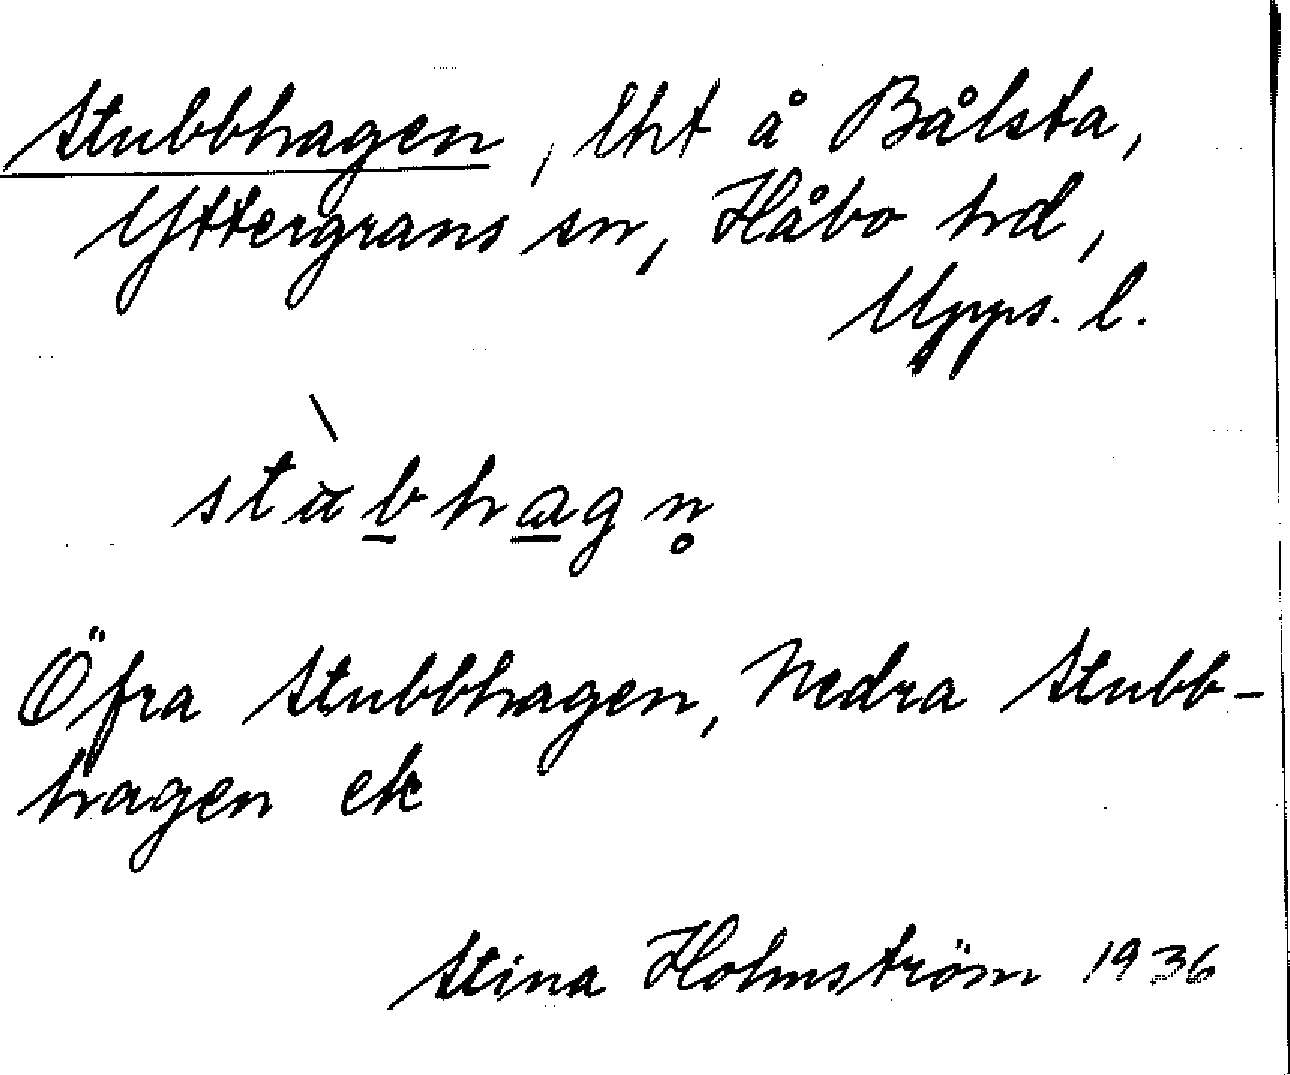 Stubbhagen, lht å Bålsta,
Yttergrans sn, Håbo hd,
Upps. l.
stu̇̀b̲ha̲gn̥
Öfra Stubbhagen, Nedra Stubb-
hagen ek
Stina Holmström 1936